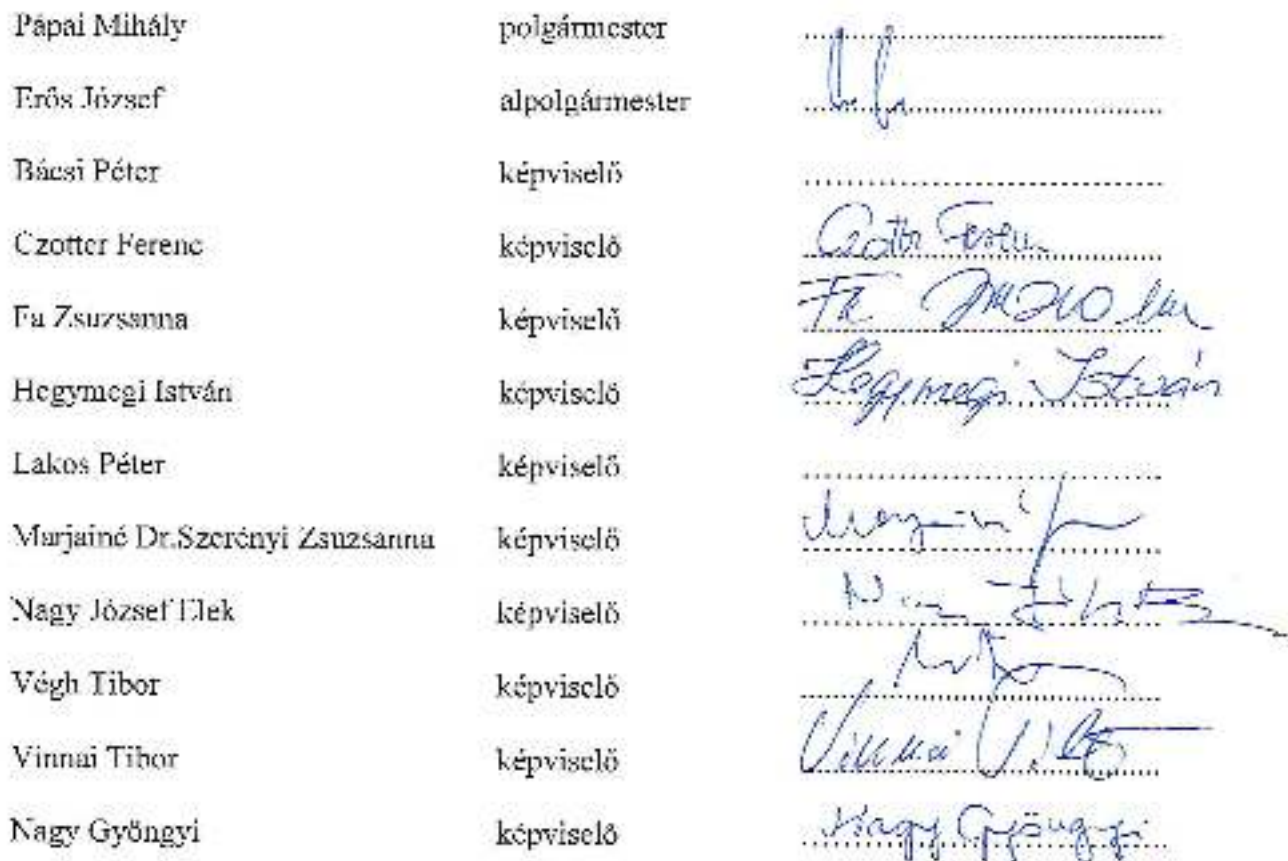 Pápai Mihály polgármester
Erős József alpolgármester
Bácsi Péter képviselő
Czotter Ferenc képviselő Czotter Ferenc
Fa Zsuzsanna képviselő Fa
Hegymegi István képviselő Hegymegi István
Lakos Péter képviselő
Marjainé Dr.Szerényi Zsuzsanna képviselő
Nagy József Elek képviselő
Végh Tibor képviselő
Vinnai Tibor képviselő Vinnai
Nagy Gyöngyi képviselő Nagy Gyöngyi